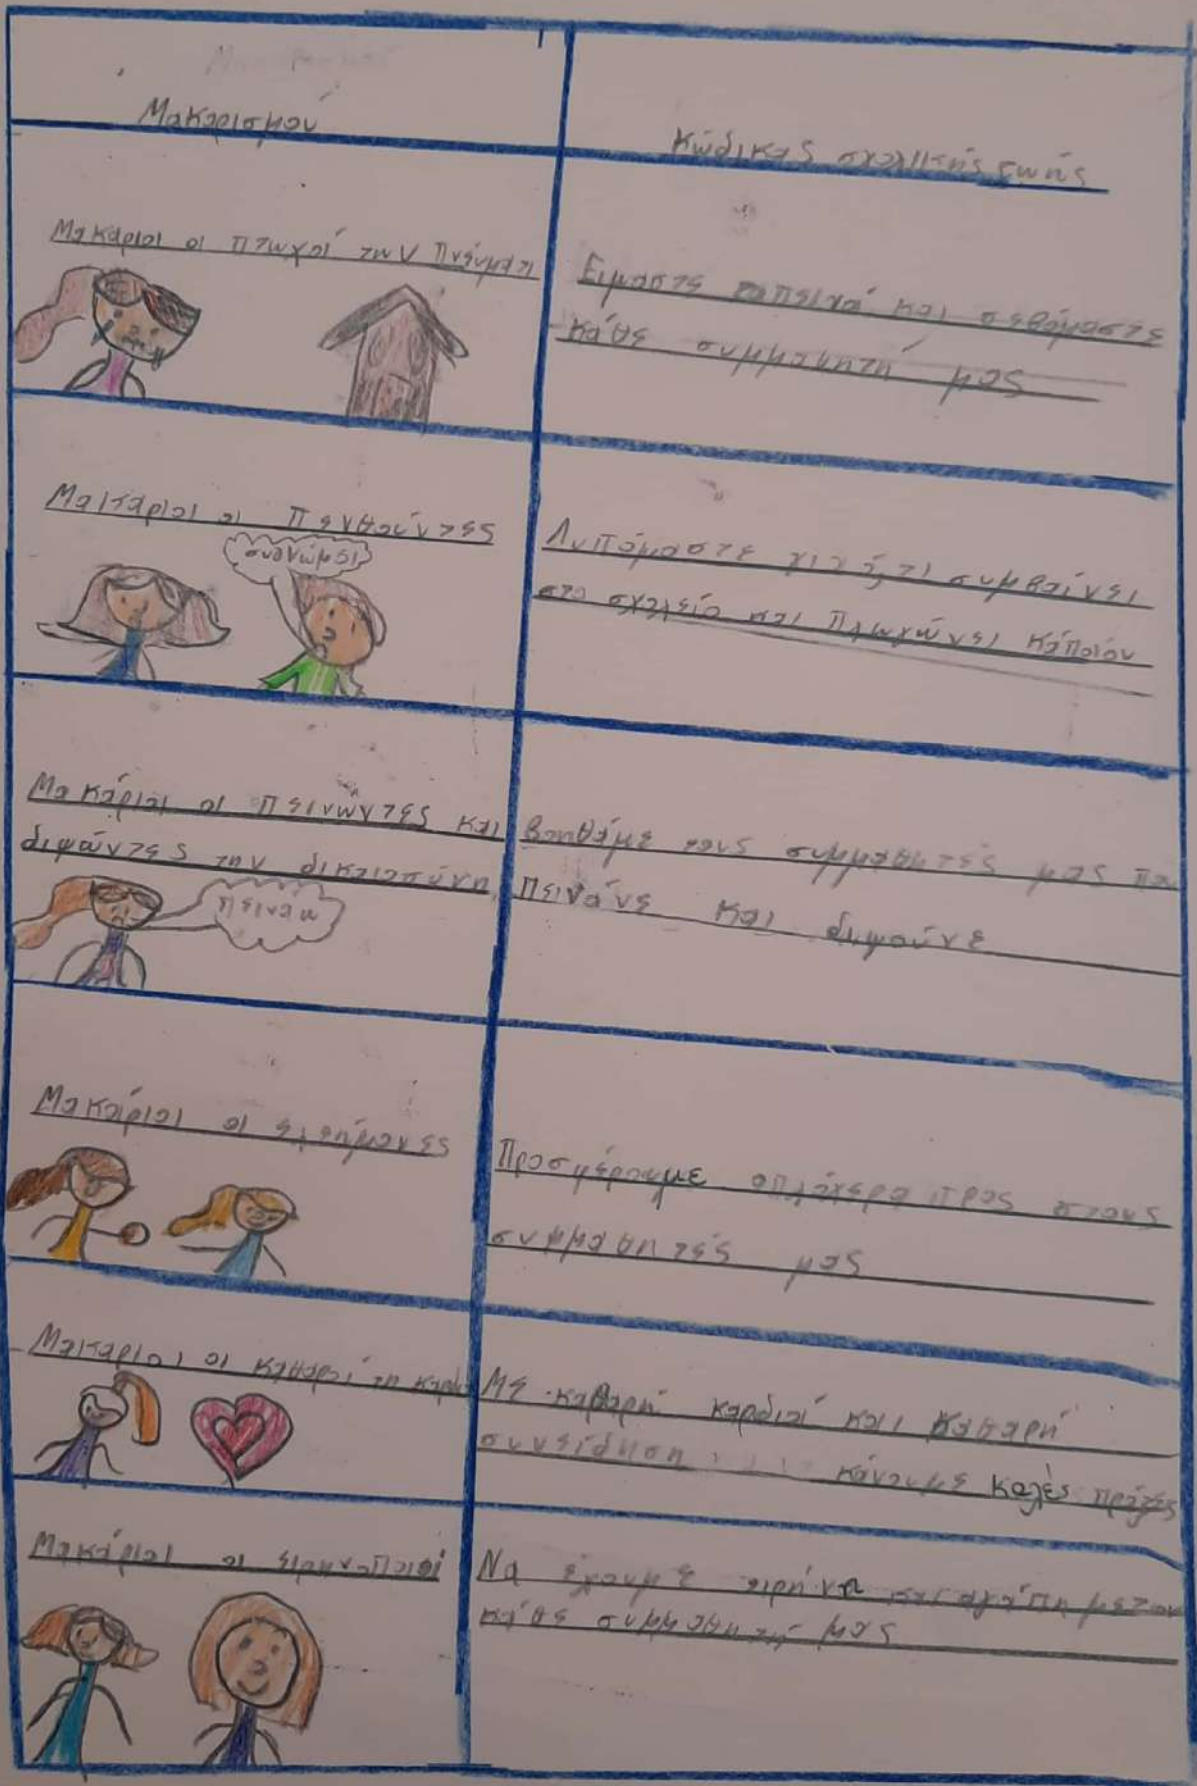 Μακαρισμού
Κώδικας σχολικής ζωής
Μακάριοι οι πτωχοί των Πνεύματι
Ειμαστε ταπεινοί και σεβόμαστε
κάθε συμμαθητή μας
Μακάριοι οι Πενθούντες
συγνώμει
Λυπόμαστε γι' ό,τι συμβαίνει
στο σχολείο και Πληγώνει κάποιον
Μακάριοι οι πεινώντες και
διψώντες την δικαιοσύνη
πεινάω
Βοηθάμε τους συμμαθητές μας που
Πεινάνε και διψούνε
Μακάριοι οι ελεήμονες
Προσφέρουμε απλόχερα προς στους
συμμαθητές μας
Μακάριοι οι καθαροί τη καρδι
Με καθαρή καρδιά και καθαρή
συνείδηση κάνουμε καλές πράξες
Μακάριοι οι ειρηνοποιοί
Να έχουμε ειρήνη και αγάπη με τον
κάθε συμμαθητή μας